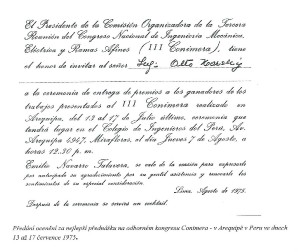 El Presidente de la Comisión Organizadora de la Tercera
Reunión del Congreso Nacional de Ingeniería Mecánica,
Eléctrica y Ramas Afines (III Conimera), tiene
el honor de invitar al señor Ing. Otto
a la ceremonia de entrega de premios a los ganadores de los
trabajos presentados al III Conimera realizado en
Arequipa, del 13 al 17 de Julio último, ceremonia que
tendrá lugar en el Colegio de Ingenieros del Perú, Av.
Arequipa 4947, Miraflores, el día Jueves 7 de Agosto, a
horas 12.30 p. m.
Emilio Navarro Talavera, se vale de la ocasión para expresarle
por anticipado su agradecimiento por su gentil asistencia y renovarle los
sentimientos de su especial consideración.
Lima, Agosto de 1975.
Después de la ceremonia se servirá un cocktail.
Předání ocenění za nejlepší přednášku na odborném kongresu Conimera - v Arequipě v Peru ve dnech
13 až 17 července 1975.